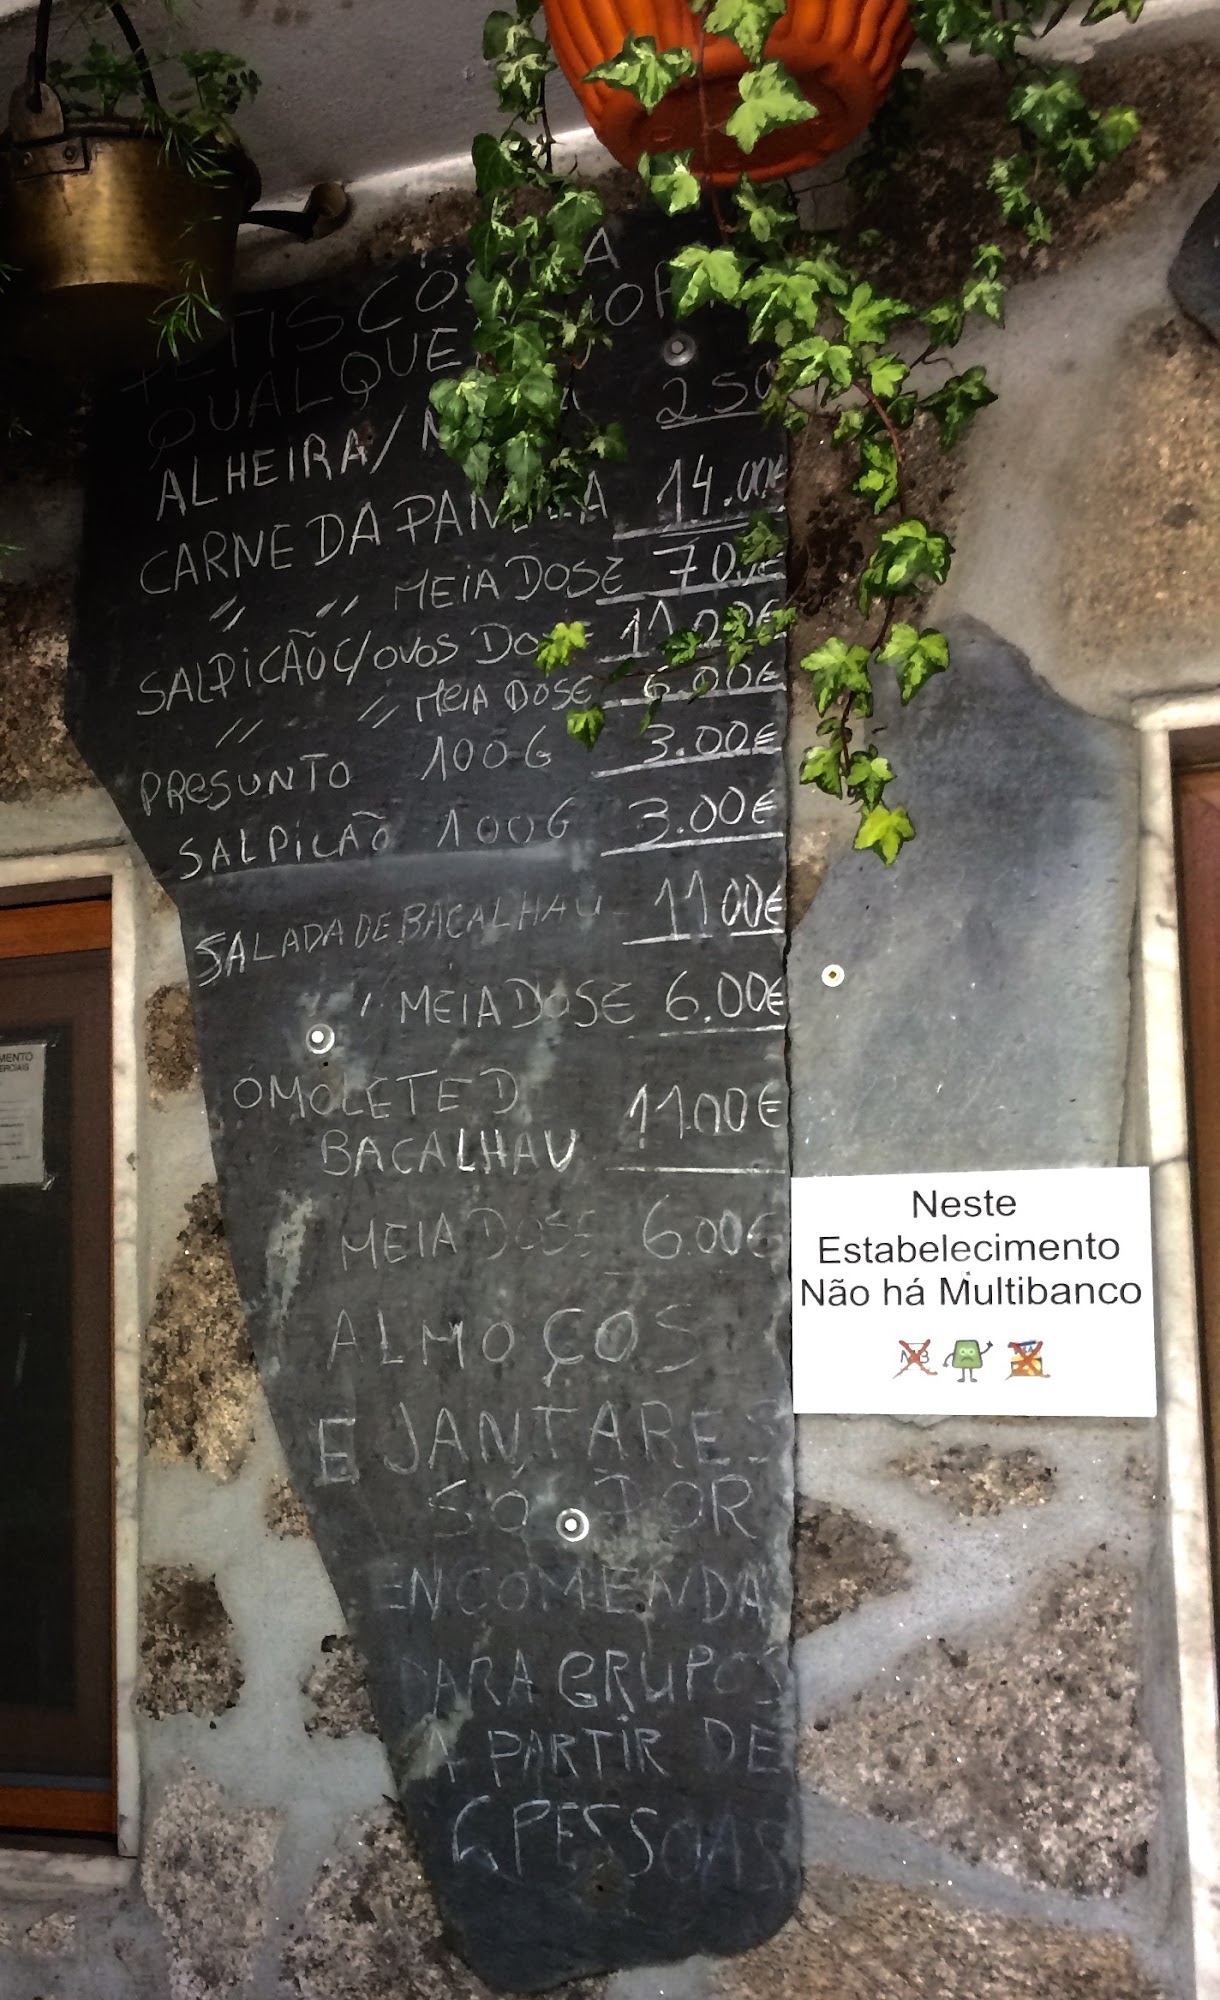 PETISCOS A
QUALQUER HORA
ALHEIRA/ 2.50
CARNE DA PANELA 14.00€
" " MEIA DOSE 70.€
SALPICÃO C/OVOS DOSE 11.00€
" " MEIA DOSE 6.00€
PRESUNTO 100G 3.00€
SALPICÃO 100G 3.00€
SALADA DE BACALHAU 11 00€
" MEIA DOSE 6.00€
OMOLETE D
BACALHAU 11.00€
MEIA DOSE 6.00€
ALMOÇOS
E JANTARES
SÓ POR
ENCOMENDA
PARA GRUPOS
A PARTIR DE
6 PESSOAS
Neste
Estabelecimento
Não há Multibanco
MB
MENTO
ERCIAIS